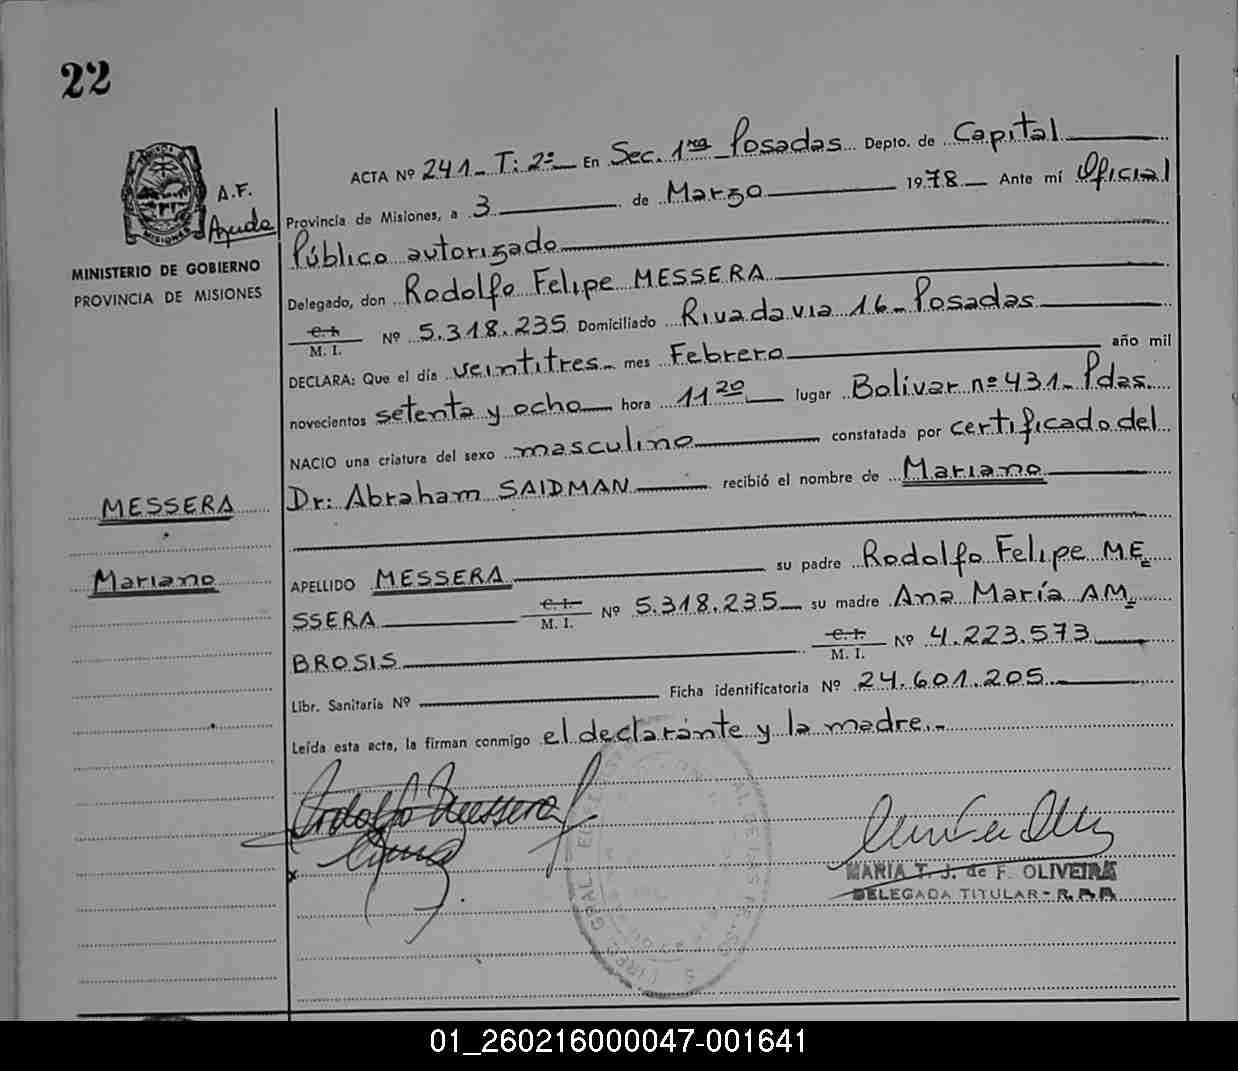 22
ACTA Nº 241 - T: 2º - En Sec. 1ra Posadas Depto. de Capital
Provincia de Misiones, a 3 de Marzo 1978 Ante mí Oficial
Público autorizado
Delegado, don Rodolfo Felipe MESSERA
C. I. / M. I. Nº 5.318.235 Domiciliado Rivadavia 16 - Posadas
DECLARA: Que el día veintitres mes Febrero año mil
novecientos setenta y ocho hora 11 20 lugar Bolivar nº 431 - Pdas.
NACIO una criatura del sexo masculino constatada por certificado del
Dr: Abraham SAIDMAN recibió el nombre de Mariano
APELLIDO MESSERA su padre Rodolfo Felipe ME
SSERA C. I. / M. I. Nº 5.318.235 su madre Ana María AM
BROSIS C. I. / M. I. Nº 4.223.573
Libr. Sanitaria Nº Ficha identificatoria Nº 24.601.205
Leída esta acta, la firman conmigo el declarante y la madre.-
Rodolfo Messera
MARIA T. J. de F. OLIVEIRA
DELEGADA TITULAR -
MISIONES
A.F.
Ayuda
MINISTERIO DE GOBIERNO
PROVINCIA DE MISIONES
MESSERA
Mariano
01_260216000047-001641